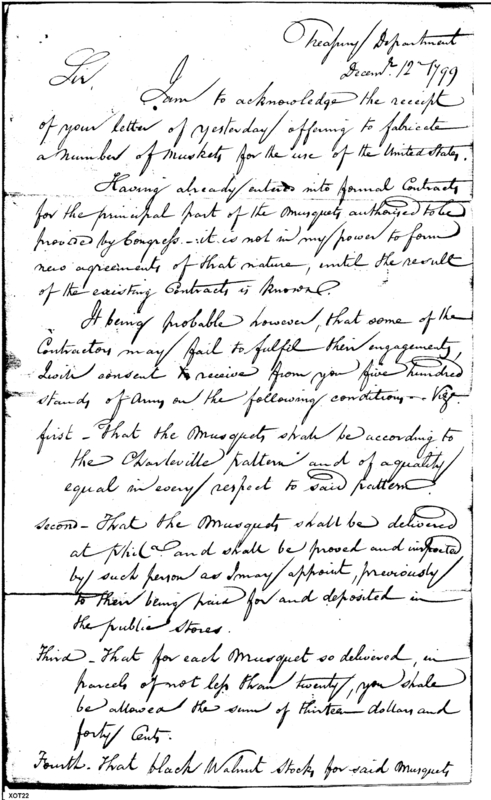 Treasury Department
Decemr. 12th 1799
Sir,
I am to acknowledge the receipt
of your letter of yesterday offering to fabricate
a number of Muskets for the use of the United States.
Having already entered into formal Contracts
for the principal part of the Musquets authorised to be
provided by Congress - it is not in my power to form
new agreements of that nature, until the result
of the existing Contracts is known.
It being probable however, that some of the
Contractors may fail to fulfil their engagements,
I will consent to receive from you five hundred
stands of Arms on the following conditions - Viz
first - That the Musquets shall be according to
the Charleville pattern and of a quality
equal in every respect to said pattern.
Second - That the Musquets shall be delivered
at Phila. and shall be proved and inspected
by such person as I may appoint, previously
to their being paid for and deposited in
the public stores.
Third - That for each Musquet so delivered, in
parcels of not less than twenty, you shall
be allowed the sum of thirteen dollars and
forty Cents.
Fourth - That black Walnut Stocks for said Musquets
XOT22